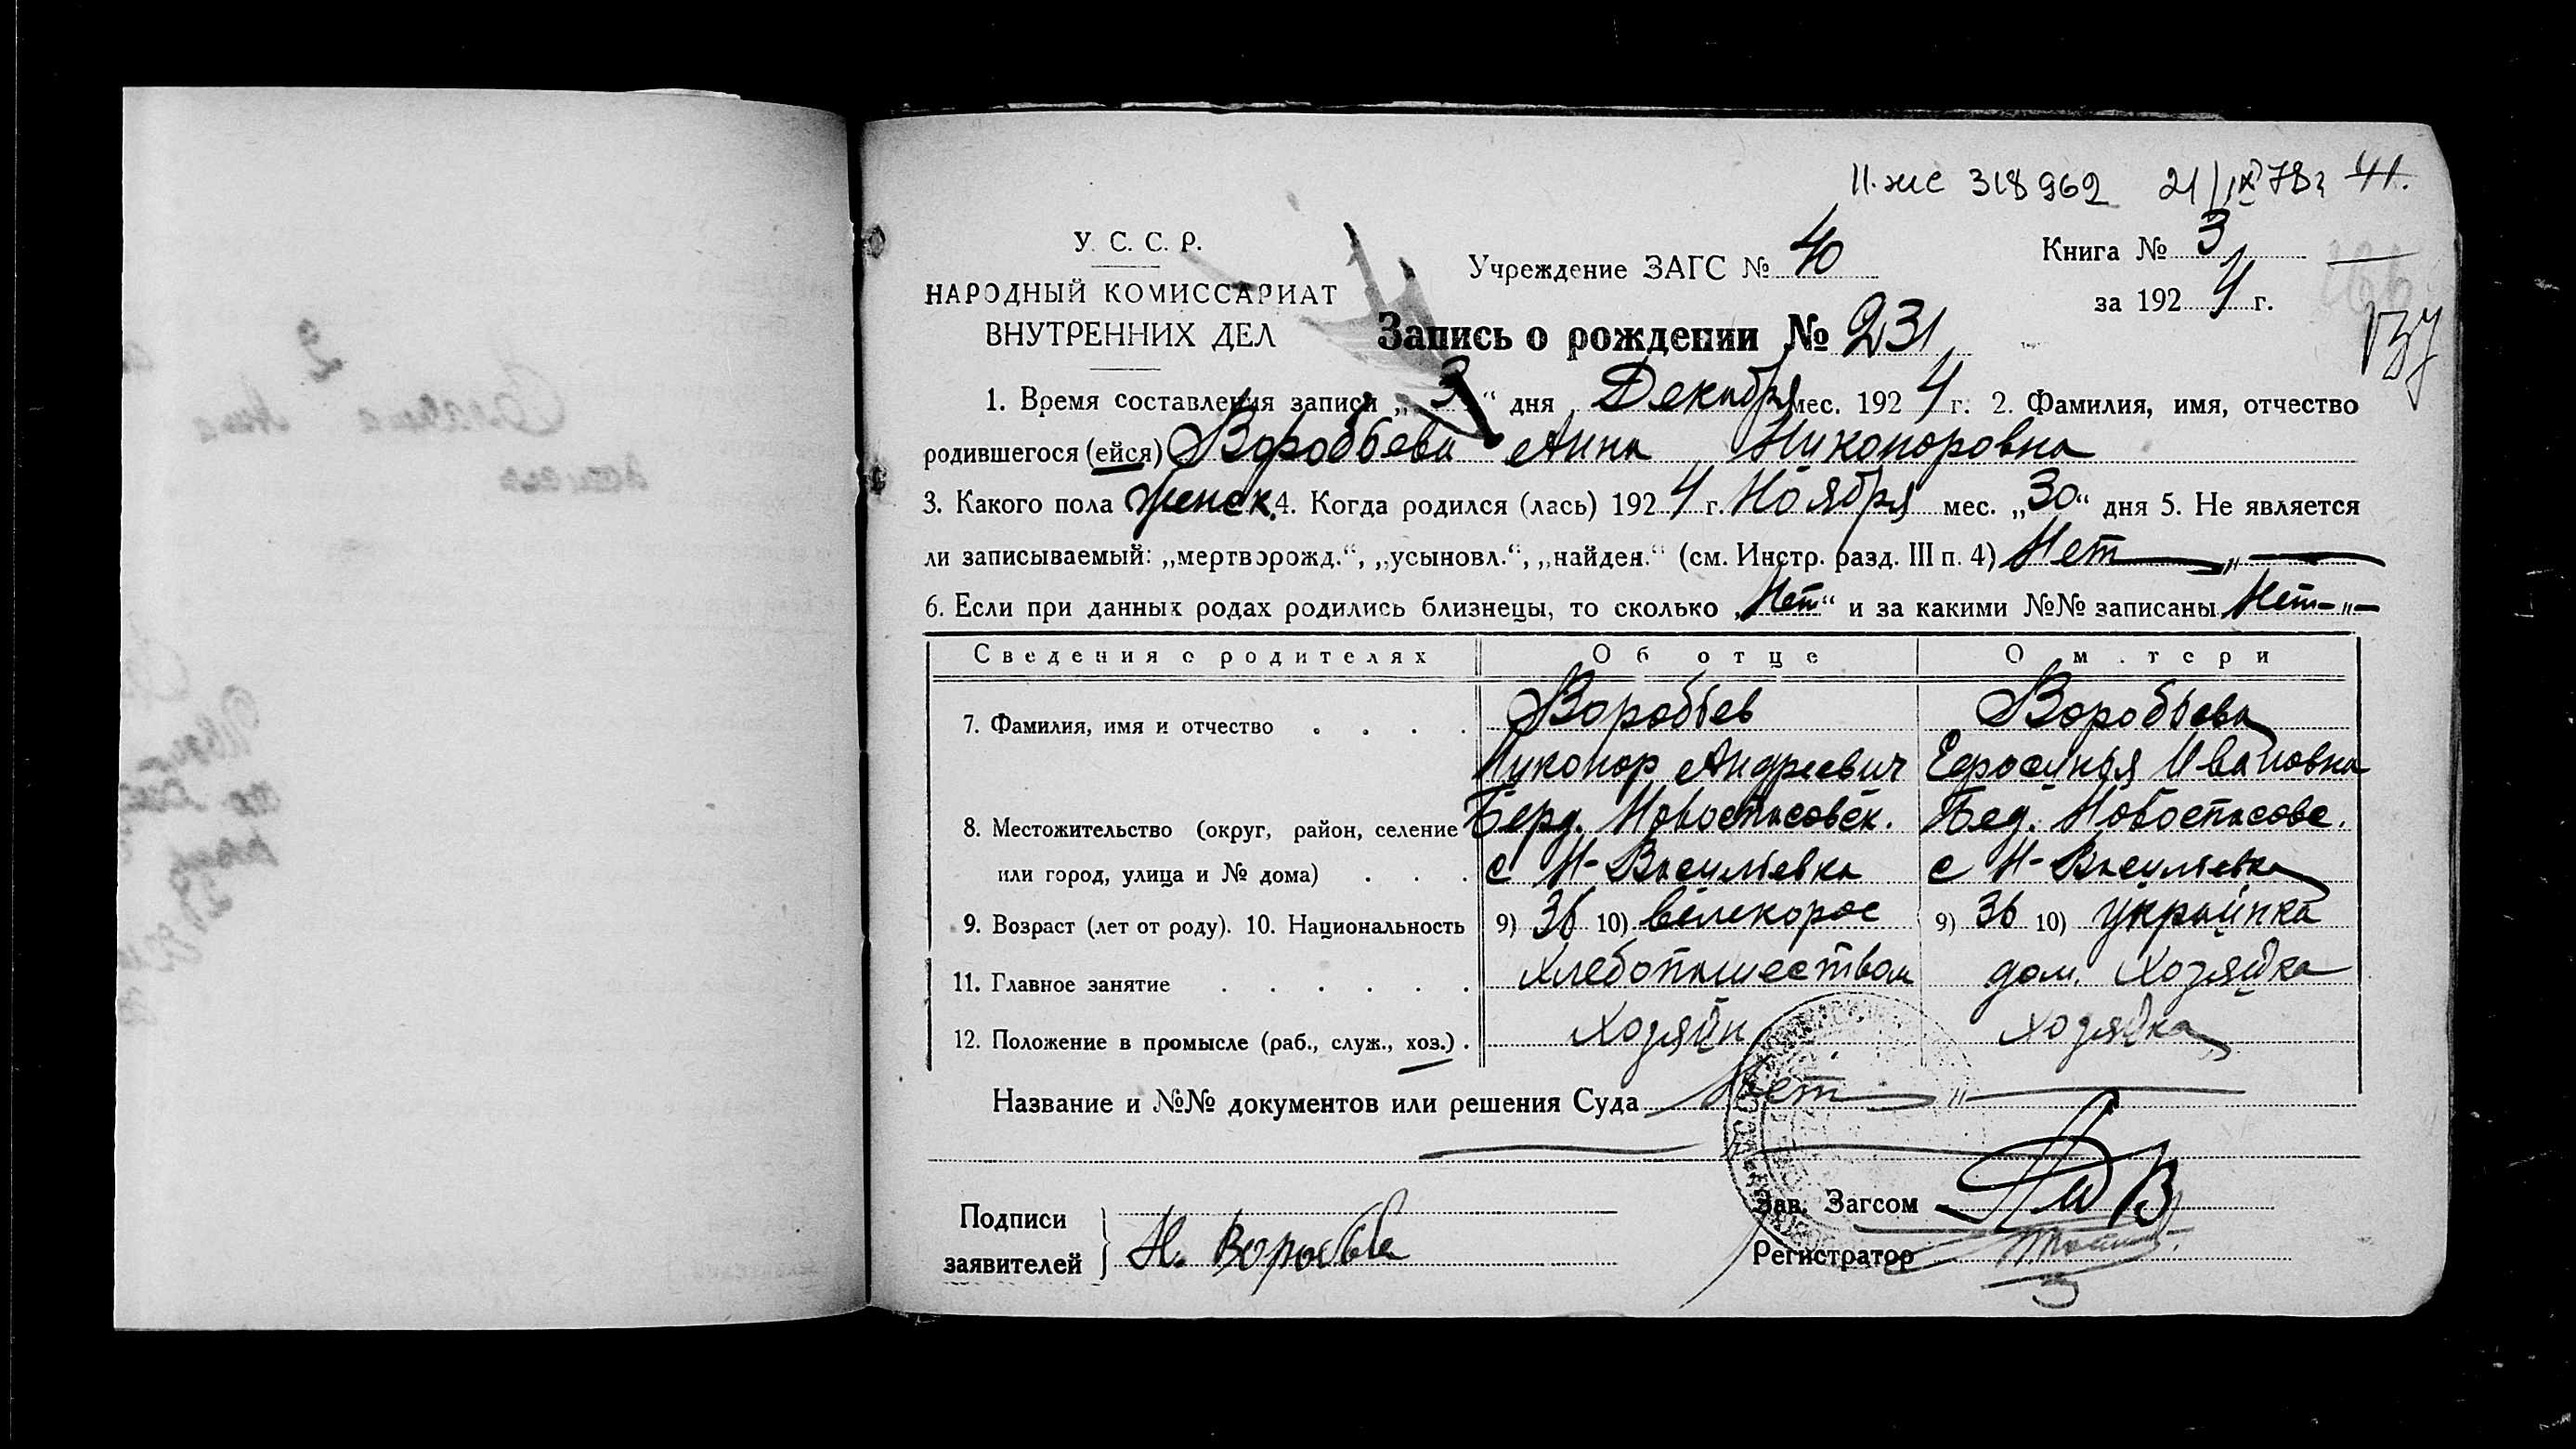 II-ЖС 318962 21/IX 78г 41.
У. С. С. Р.
НАРОДНЫЙ КОМИССАРИАТ
ВНУТРЕННИХ ДЕЛ
Учреждение ЗАГС № 40
Книга № 3
за 1924 г.
137
Запись о рождении № 231
1. Время составления записи „3“ дня Декабря мес. 1924 г. 2. Фамилия, имя, отчество
родившегося (ейся) Воробьева Анна Никоноровна
3. Какого пола женск. 4. Когда родился (лась) 1924 г. Ноября мес. „30“ дня 5. Не является
ли записываемый: „мертворожд.“, „усыновл.“, „найден.“ (см. Инстр. разд. III п. 4) Нет — „ —
6. Если при данных родах родились близнецы, то сколько „Нет“ и за какими №№ записаны Нет - „ -
Сведения о родителях Об отце О м.тери
7. Фамилия, имя и отчество . . . . Воробьев Воробьева
Никонор Андреевич Ефросинья Ивановна
8. Местожительство (округ, район, селение Берд. Новоспасовск. Бед. Новоспасовс.
или город, улица и № дома) . . . с Н-Васильевка с Н-Васильевка
9. Возраст (лет от роду). 10. Национальность 9) 36 10) велекорос 9) 36 10) украинка
11. Главное занятие . . . . . . Хлебопашеством дом. Хозяйка
12. Положение в промысле (раб., служ., хоз.) . Хозяин Хозяйка
Название и №№ документов или решения Суда Нет — „ —
Подписи
заявителей } Н. Воробьев
Зав. Загсом
Регистратор